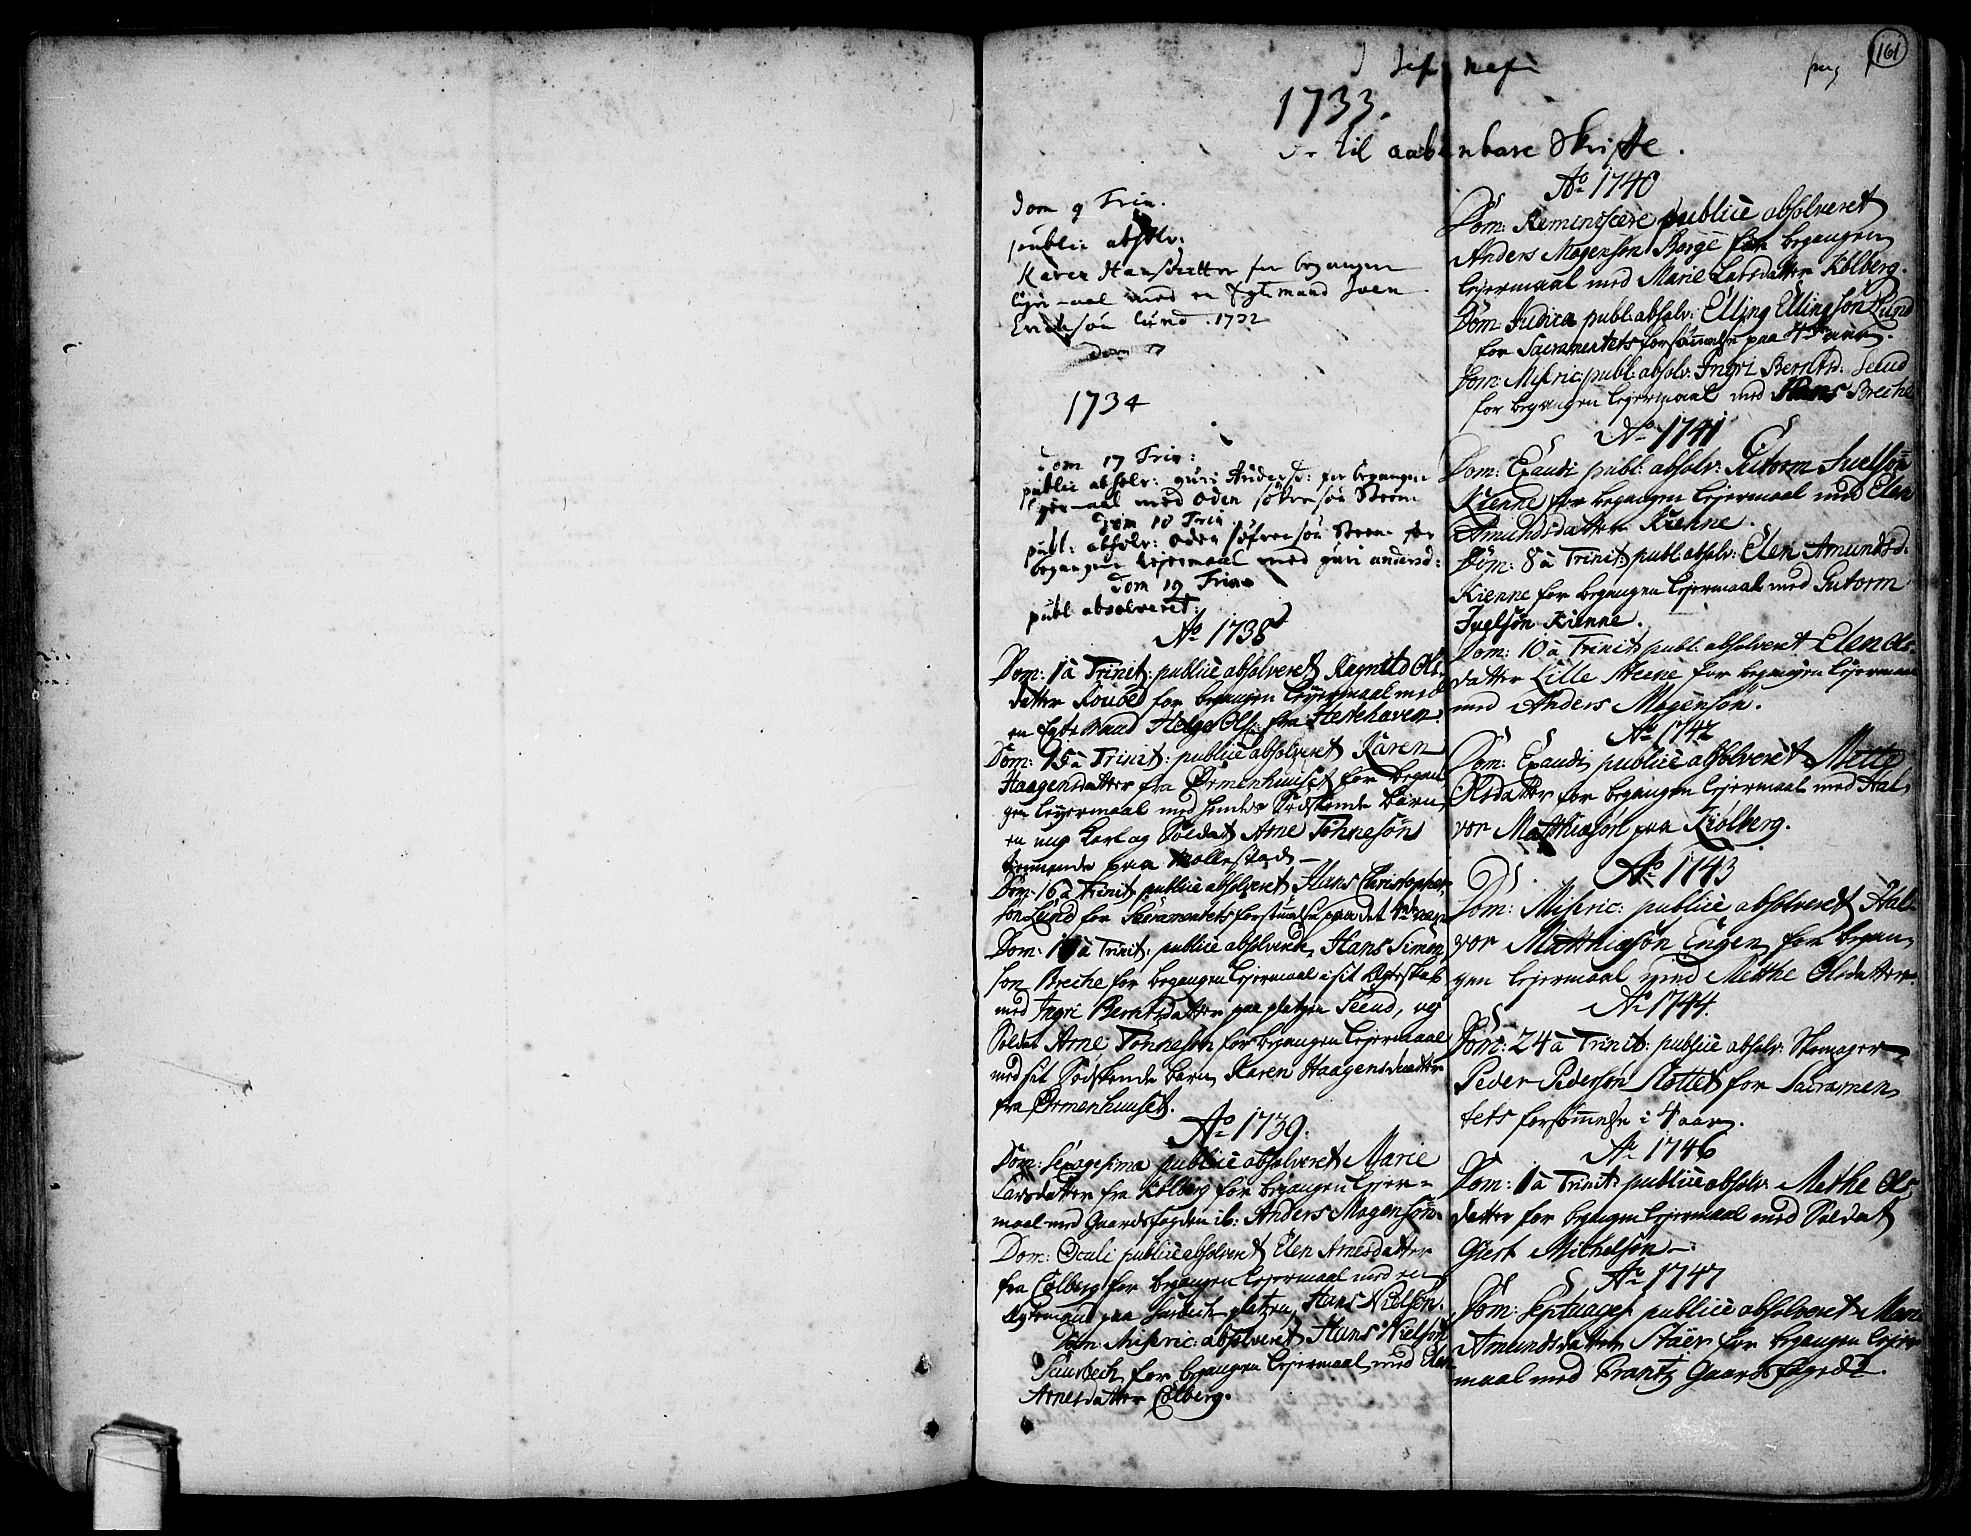 161
pag
1733.
til aabenbare Skrifte.
Dom 9 Trin.
public absolv:
Karen Hansdatter for begangen
med en Egtemand Iven
Erichsøn Lund. 1732
1734
Dom 17 Trin:
public absolv: Guri Anders d: for begangen
med Oden Søfrensøn Steen
Dom 18 Trin
publ: absolv: Oden Søfrensøn Steen for
begangen Lejermaal med Guri Andersd:
Dom 19 Trin
publ absolveret:
Ao 1738
Dom: 1 à Trinit: publicè absolveret Ragnild Ols-
datter for begangen Lejermaal med
en Egtemand Helge Ols: fra Herrehaven.
Dom: 15 à Trinit: publicè absolveret Karen
Haagensdatter fra Ormenhuuset for began
gen Lejermaal med hendes Södskende barn,
en ung Karl og Soldat Arne Tönnesön
tiennende paa Mollestad
Dom: 16 à Trinit publicè absolveret Hans Christopher
son Lund for Sacramentets forsömmelse paa det 4de aar.
Dom: à Trinit: publicè absolveret, Hans Simon
son Breche for begangen Lejermaal i sit Egteskab
med Ingri Berntsdatter paa platzen Seeud, og
Soldat Arne Tönnesön for begangen Lejermaal
med sit Södskende barn, Karen Haagensdaatter
fra Ormenhuuset.
Ao 1739.
Dom: Sexagesima publicè absolveret Marie
Larsdatter fra Kölberg for begangen Lejer-
maal med Gaardsfogden ib: Anders Mogensön.
Dom: Oculi publicè absolveret Elen Arnesdatter
fra Cölberg for begangen Lejermaal med en
Egtemand paa platzen, Hans Nielsön.
Dom: Miseric: absolveret Hans Nielsön
for begangen Lejermaal med Elen
Arnesdatter Cölberg.
Ao 1740
Dom: Reminiscere publicè absolveret
Anders Mogensön Borge for begangen
Lejermaal med Marie Larsdatter Kölberg.
Dom: Judica publ: absolv: Elling Ellingsön Lund
for Sacramentets forsömmelse paa 4de aar.
Dom: Miseric: publ: absolv: Ingri Berntsd: Seeud
for begangen Lejermaal med Hans Breche
Ao 1741
Dom: Exaudi publ: absolv: Gutorm Juelsön
Kienne for begangen Lejermaal med Elen
Amundsdatter Kienne.
Dom: 8 à Trinit: publ: absolv: Elen Amundsd:
Kienne for begangen Lejermaal med Gutorm
Juelsön Kienne.
Dom: 10 à Trinit: publ: absolveret Elen Ols-
datter Lille for begangen Lejermaal
med Anders Mogensön.
Ao 1742
Dom: Exaudi, publicè absolveret Mette
Olsdatter for begangen Lejermaal med Hal-
vor Matthiasön paa Kiölberg.
Ao 1743
Dom: Miseric: publicè absolveret Hal-
vor Matthiasön Engen, for began
gen Lejermaal med Methe Olsdatter.
Ao 1744.
Dom: 24 à Trinit: publicè absolv: Skomager
Peder Pedersön Slottet for Sacramen
tets forsömmelse i 4 aar.
Ao 1746
Dom: 1 à Trinit: publicè absolv: Methe Ols-
datter for begangen Lejermaal med Soldat
Giert Michelsön
Ao 1747
Dom: Septuages: publicè absolveret Mari
Amundsdatter for begangen Lejer
maal med Brantz Gaards foged